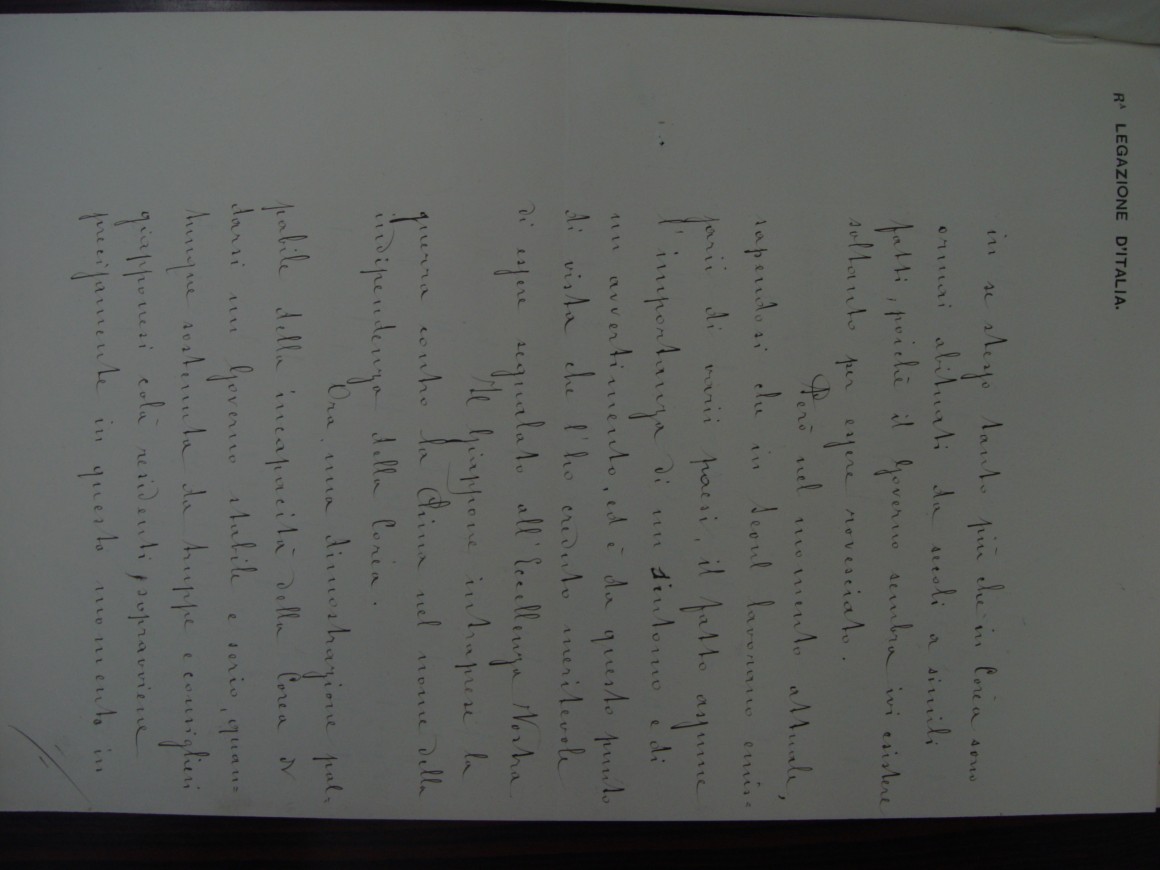 Rᴬ LEGAZIONE D'ITALIA.
in se stesso tanto più che in Corea sono
ormai abituati da secoli a simili
fatti, poichè il Governo sembra ivi esistere
soltanto per essere rovesciato.
Però nel momento attuale,
sapendosi che in Seoul lavorano emis=
sarii di varii paesi, il fatto assume
l'importanza di un sintomo e di
un avvertimento, ed è da questo punto
di vista che l'ho creduto meritevole
di essere segnalato all'Eccellenza Vostra.
Il Giappone intraprese la
guerra contro la China nel nome della
indipendenza della Corea.
Ora, una dimostrazione pal=
pabile della incapacità della Corea di
darsi un Governo stabile e serio, quan=
tunque sostenuta da truppe e consiglieri
giapponesi colà residenti, sopravviene
precisamente in questo momento in